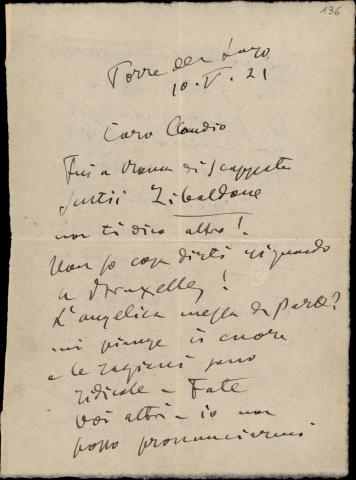 136
Torre del Lago
10.V.21
Caro Claudio
Fui a Roma di scappata
sentii Zibaldone
non ti dico altro!
Non so cosa dirti riguardo
a Bruxelles!
L'angelica messa da parte?
mi piange il cuore
e le ragioni sono
ridicole - Fate
voi altri - io non
posso pronunciarmi